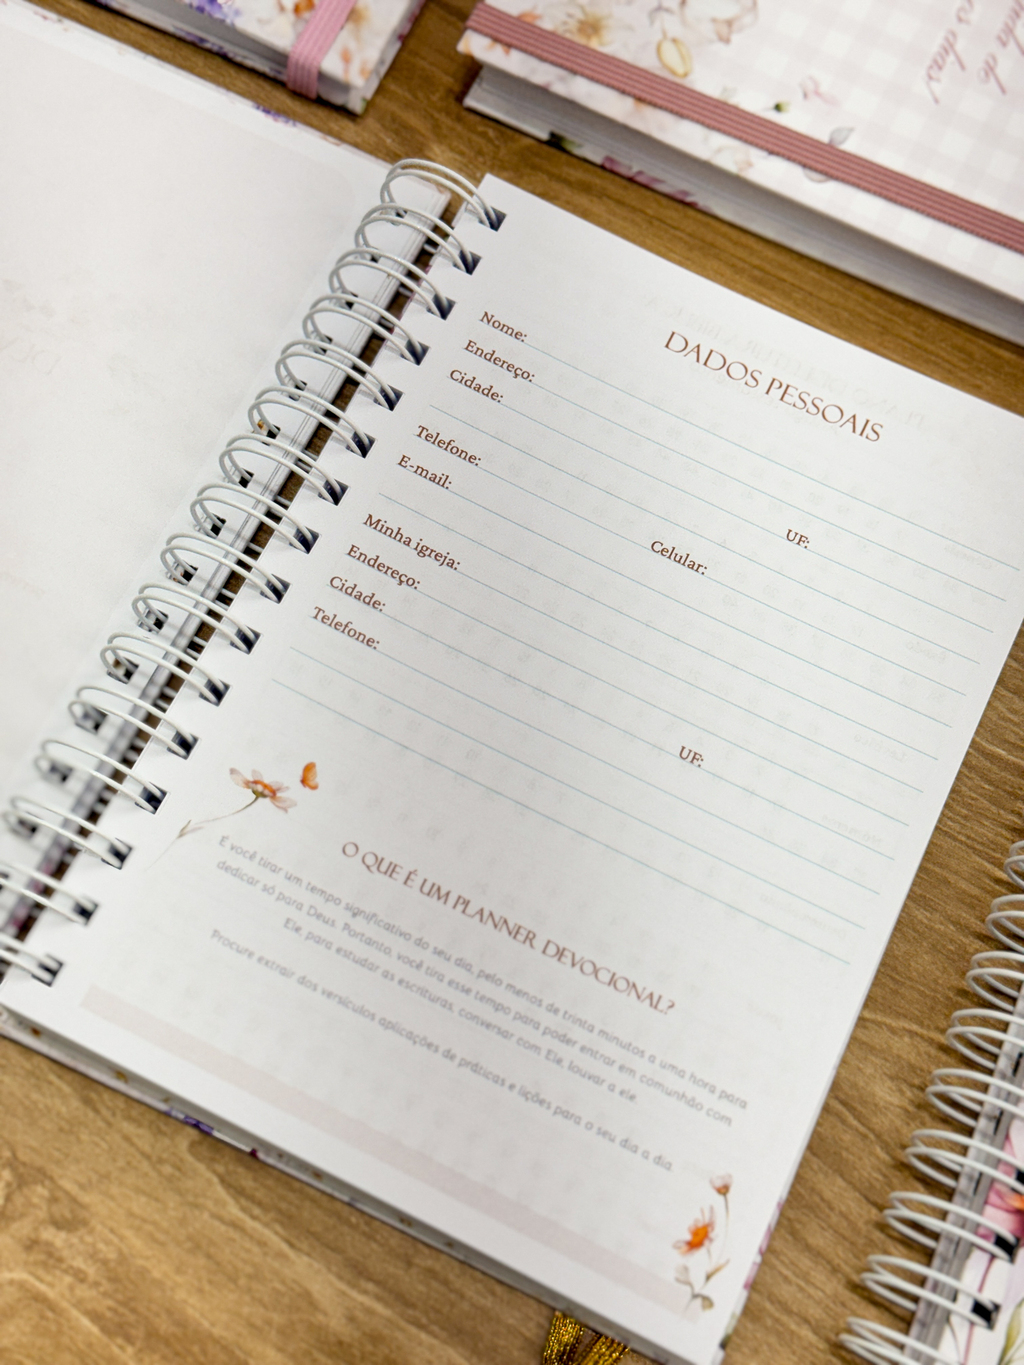 DADOS PESSOAIS
Nome:
Endereço:
Cidade:
UF:
Telefone:
Celular:
E-mail:
Minha igreja:
Endereço:
Cidade:
UF:
Telefone:
O QUE É UM PLANNER DEVOCIONAL?
É você tirar um tempo significativo do seu dia, pelo menos de trinta minutos a uma hora para
dedicar só para Deus. Portanto, você tira esse tempo para poder entrar em comunhão com
Ele, para estudar as escrituras, conversar com Ele, louvar a ele.
Procure extrair dos versículos aplicações de práticas e lições para o seu dia a dia.